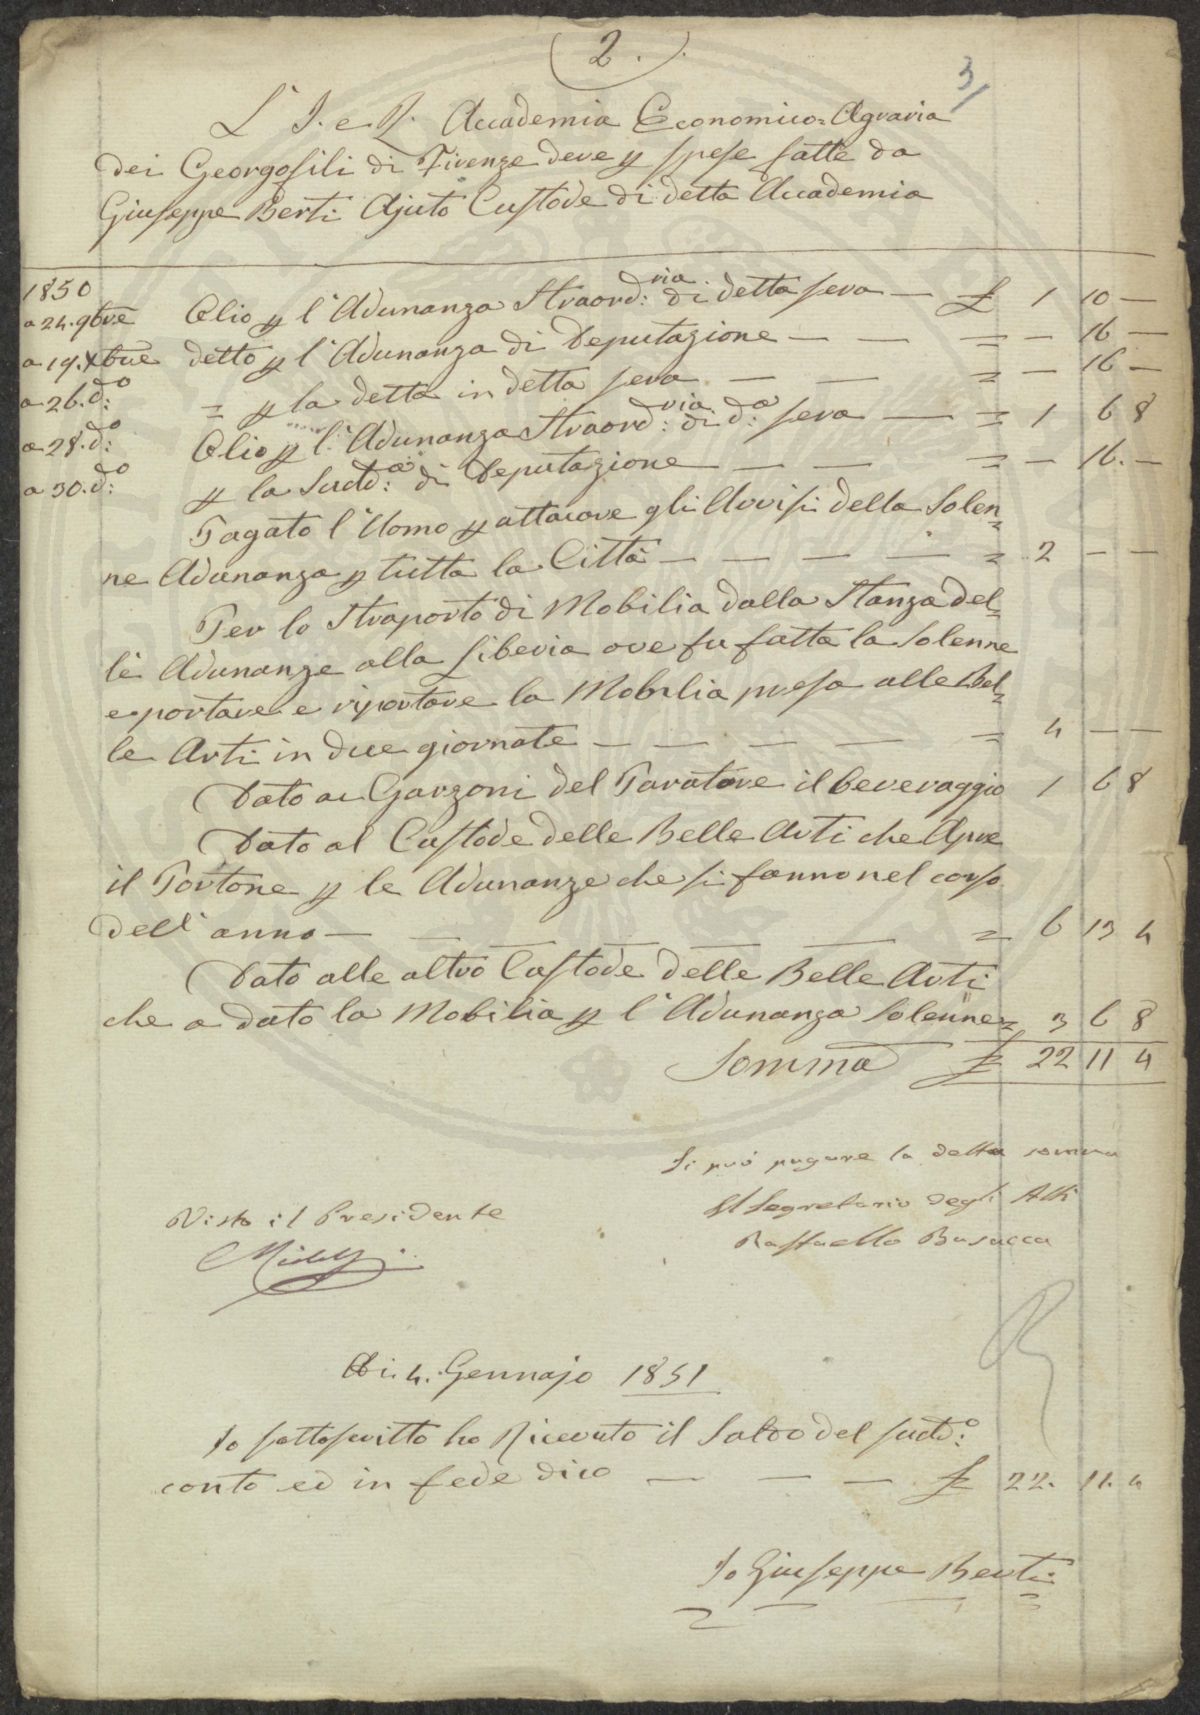 (2.)
3/
L' I. e R. Accademia Economico=Agraria
dei Georgofili di Firenze deve p spese fatte da
Giuseppe Berti Ajuto Custode di detta Accademia
1850
a 24. 9bre Olio p l'Adunanza Straord:ria di detta sera — £ 1 10 —
a 19. Xbre detto p l'Adunanza di Deputazione — — = — 16 —
a 26. do: = p la detta in detta sera — — = — 16 —
a 28. do: Olio p l'Adunanza Straord:ria di da: sera — = 1 6 8
a 30. do: p la Sudd:a di Deputazione — — = — 16. —
Pagato l'Uomo p attacare gli Avvisi della Solen=
ne Adunanza p tutta la Città — — — — = 2 — —
Per lo Straporto di Mobilia dalla Stanza del=
le Adunanze alla Liberia ove fu fatta la Solenne
e portare e riportare la Mobilia presa alle Bel=
le Arti in due giornate — — — — = 4 — —
Dato ai Garzoni del Paratore il beveraggio 1 6 8
Dato al Custode delle Belle Arti che Apre
il Portone p le Adunanze che si fanno nel corso
dell'anno — — — — — = 6 13 4
Dato alle altro Custode delle Belle Arti
che a dato la Mobilia p l'Adunanza Solenne = 3 6 8
Somma £ 22 11 4
Si può pagare la detta somma
Il Segretario degli Atti
Raffaello Busacca
Visto il Presidente
Di 4. Gennajo 1851
Io sottoscritto ho Ricevuto il Saldo del sudd:o
conto ed in fede dico — — — £ 22. 11. 4
Io Giuseppe Berti